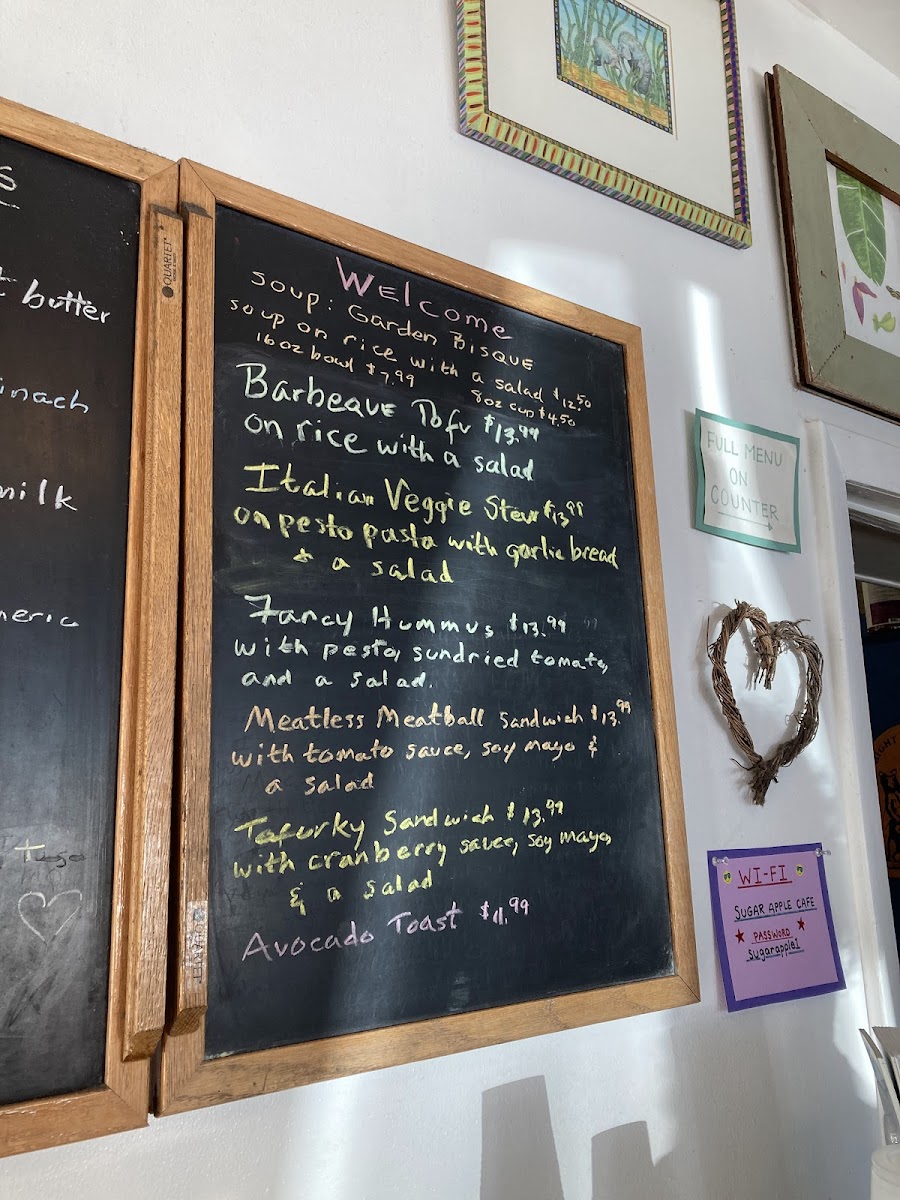 S
t butter
inach
milk
meric
QUARTET
Welcome
Soup: Garden Bisque
Soup on rice with a salad $12.50
16oz bowl $7.99
8oz cup $4.50
Barbeque Tofu $13.99
on rice with a salad
Italian Veggie Stew $13.99
on pesto pasta with garlic bread
+ a salad
Fancy Hummus $13.99
with pesto, sundried tomato,
and a salad.
Meatless Meatball Sandwich $13.99
with tomato sauce, soy mayo &
a salad
Tofurky Sandwich $13.99
with cranberry sauce, soy mayo,
& a salad
Avocado Toast $11.99
QUARTET
FULL MENU
ON
COUNTER
WI-FI
SUGAR APPLE CAFE
PASSWORD
sugarapple1